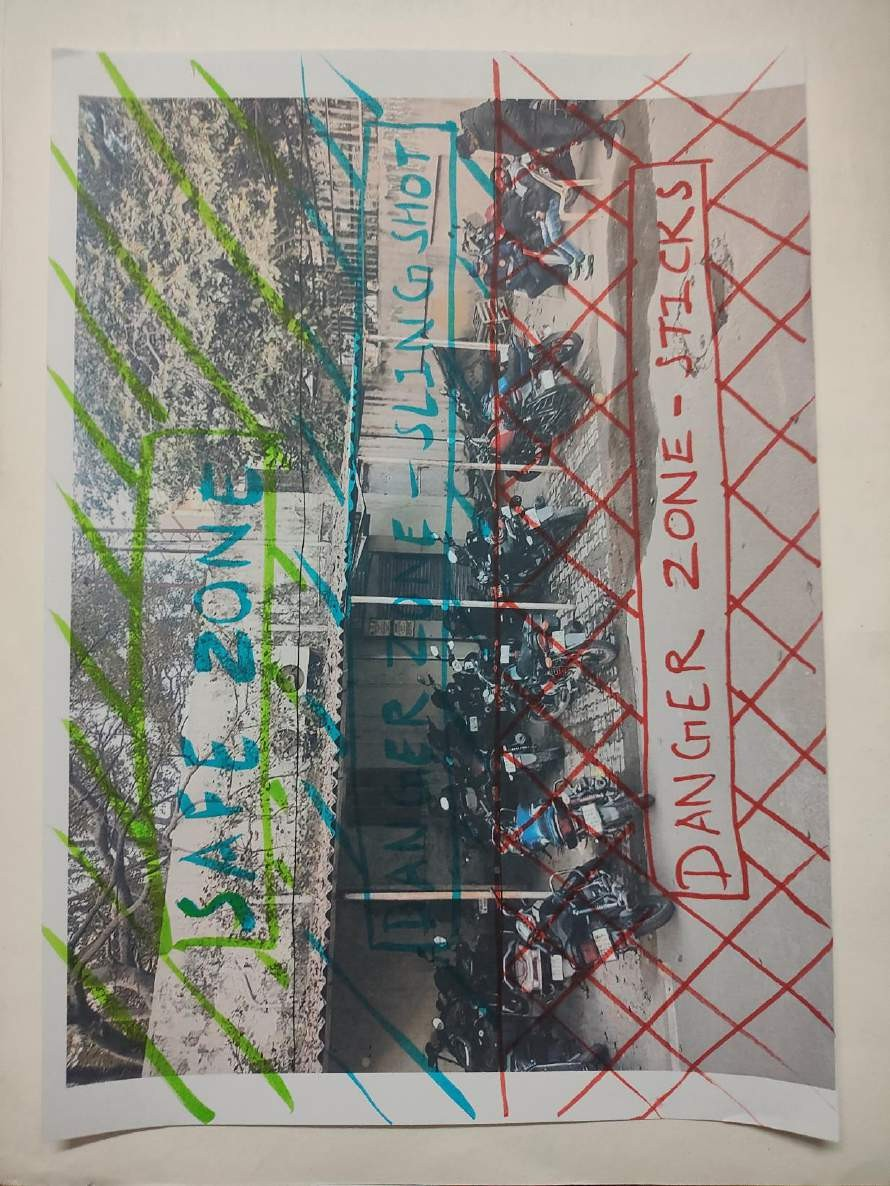 SAFE ZONE
DANGER ZONE - SLINGSHOT
DANGER ZONE - STICKS